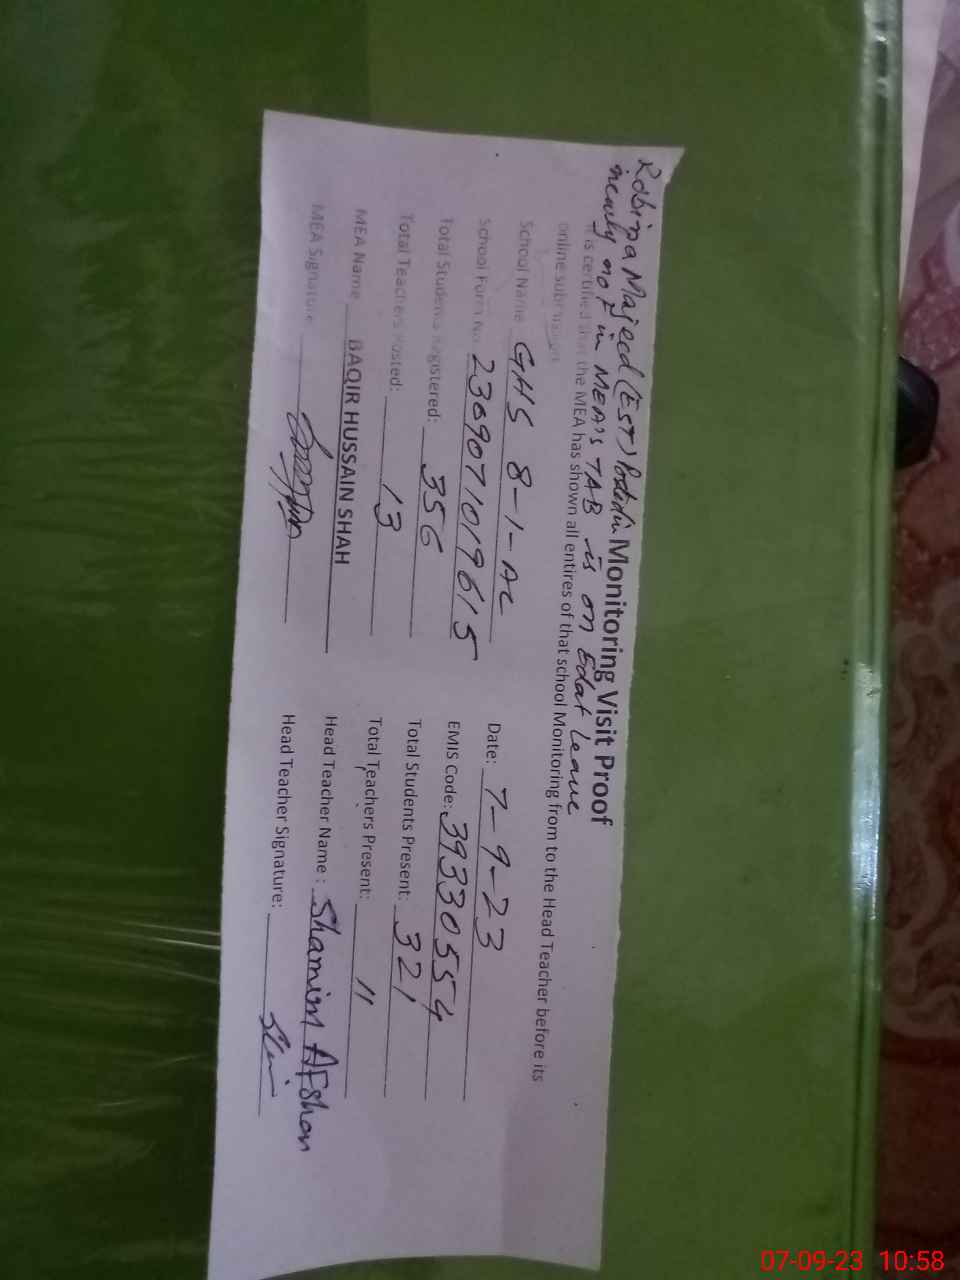 Robina Majeed (EST) Posted in
nearly not in MEA's TAB is on Edat Leave
Monitoring Visit Proof
It is certified that the MEA has shown all entires of that school Monitoring from to the Head Teacher before its
online submission
School Name GHS 8-1-AL
Date: 7-9-23
School Form No. 2309071019615
EMIS Code: 39330554
Total Students Registered: 356
Total Students Present: 321
Total Teachers Posted: 13
Total Teachers Present: 11
MEA Name BAQIR HUSSAIN SHAH
Head Teacher Name : Shamim AFshan
MEA Signature
Head Teacher Signature:
07-09-23 10:58